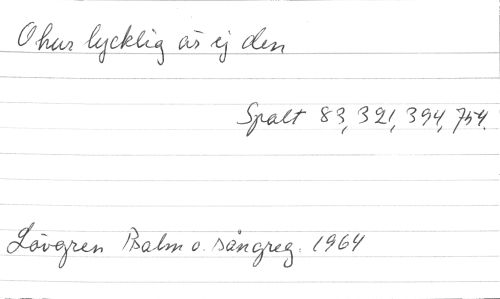 O hur lycklig är ej den
Spalt 83, 321, 394, 754.
Lövgren Psalm o. sångreg. 1964